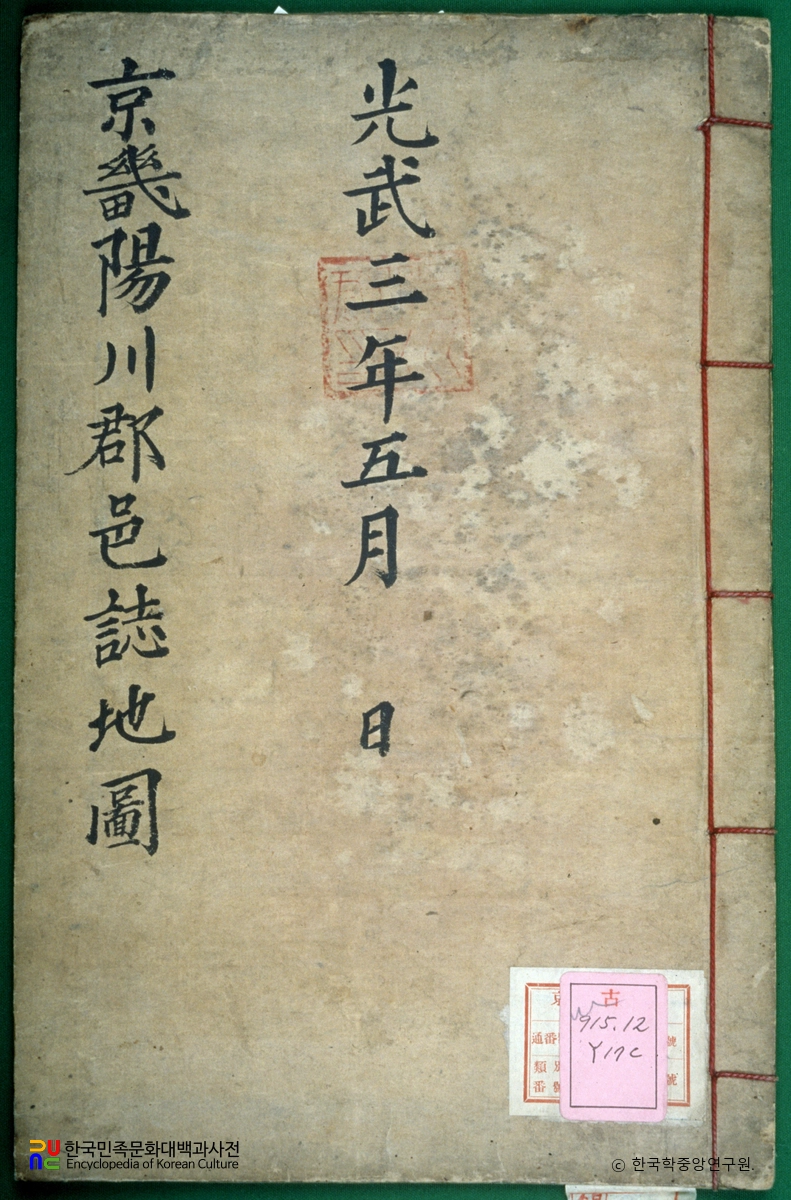 光武三年五月 日
京畿陽川郡邑誌地圖
古
915.12
Y17c
通番
號
類
番
號
한국민족문화대백과사전
Encyclopedia of Korean Culture
© 한국학중앙연구원.